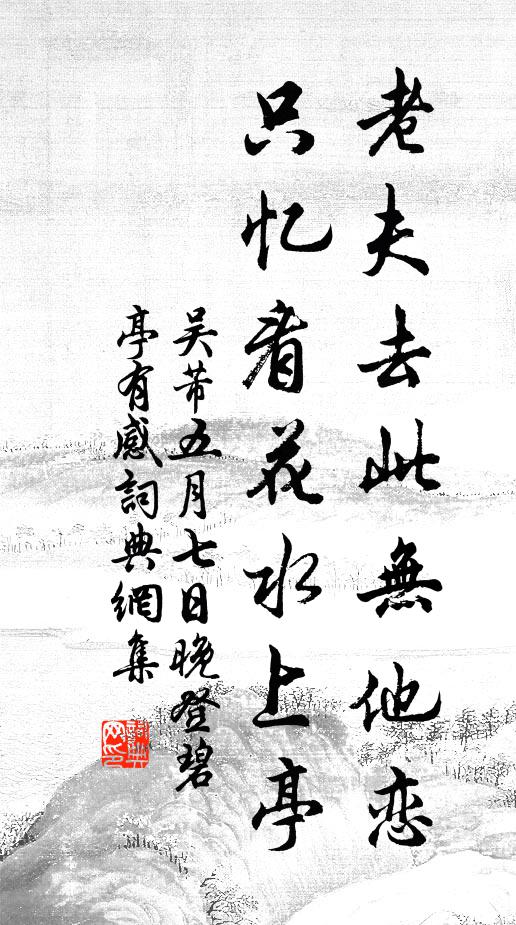 老夫去此無他恋
只忆看花水上亭
吴芾五月七日晚登碧
亭有感詞典網集
詞典
网印